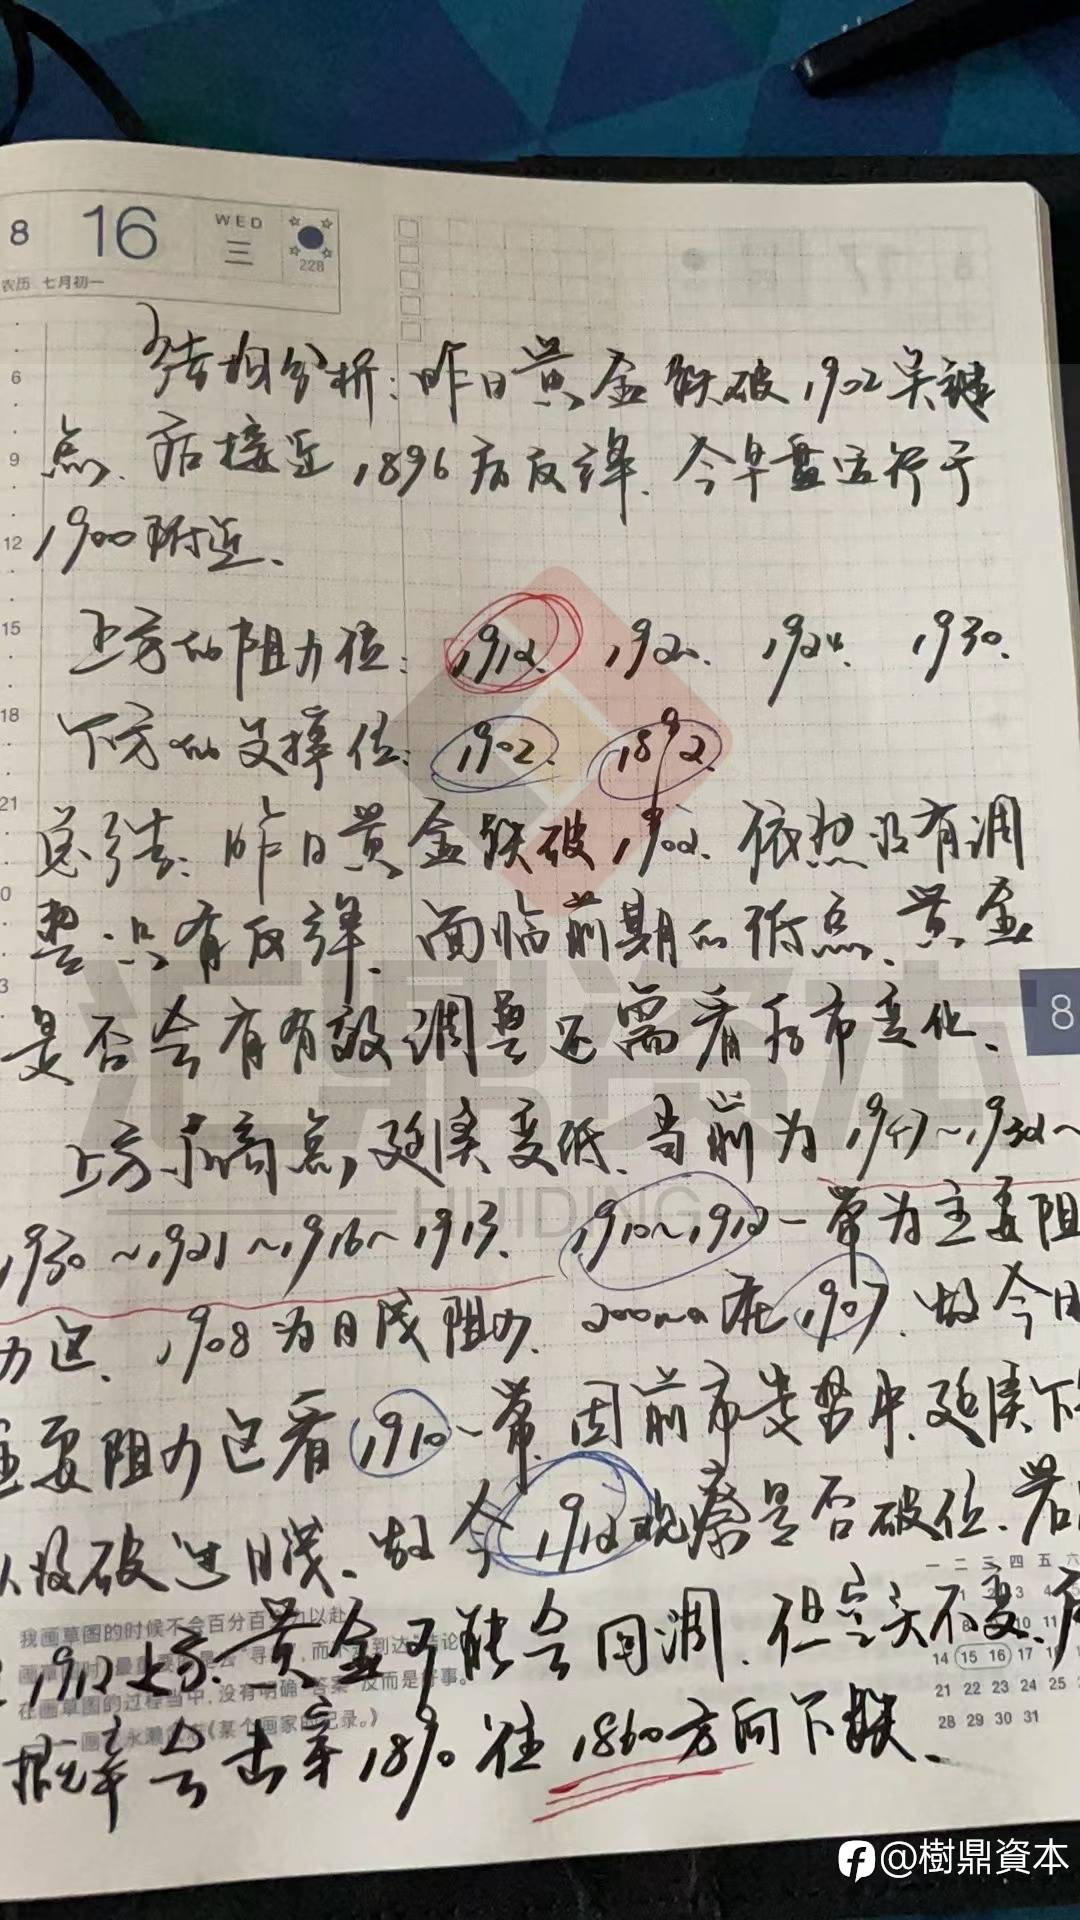 8 16 WED 三 228
农历 七月初一
结构分析：昨日黄金跌破1902关键
点、后接近1896后反弹、今早盘运行于
1900附近、
上方的阻力位：1912、1920、1924、1930、
下方的支撑位：1902、1892、
总结：昨日黄金跌破1902、依然没有调
整、只有反弹、面临前期的低点、黄金
是否会有有效调整还需看后市变化、
上方求高点,延续变低、当前为1947~1932~
1930~1921~1916~1913、1910~1912一带为主要阻
力区、1908为日线阻力、200ma在1907、故今日
主要阻力区看1910一带、因前市走势中,延续下
以没破过日线、故今1912观察是否破位、若
1912上方、黄金可能会回调、但空头不变、
概率会击穿1890往1860方向下跌、
6
9
12
15
18
21
0
3
8
我画草图的时候不会百分百 力以赴
在画草图的过程当中，没有明确 答案 反而是好事。
(某个画家的记录。)
一 二 三 四 五 六
14 15 16 17
21 22 23 24 25
28 29 30 31
汇鼎资本
HUIDING
@樹鼎資本